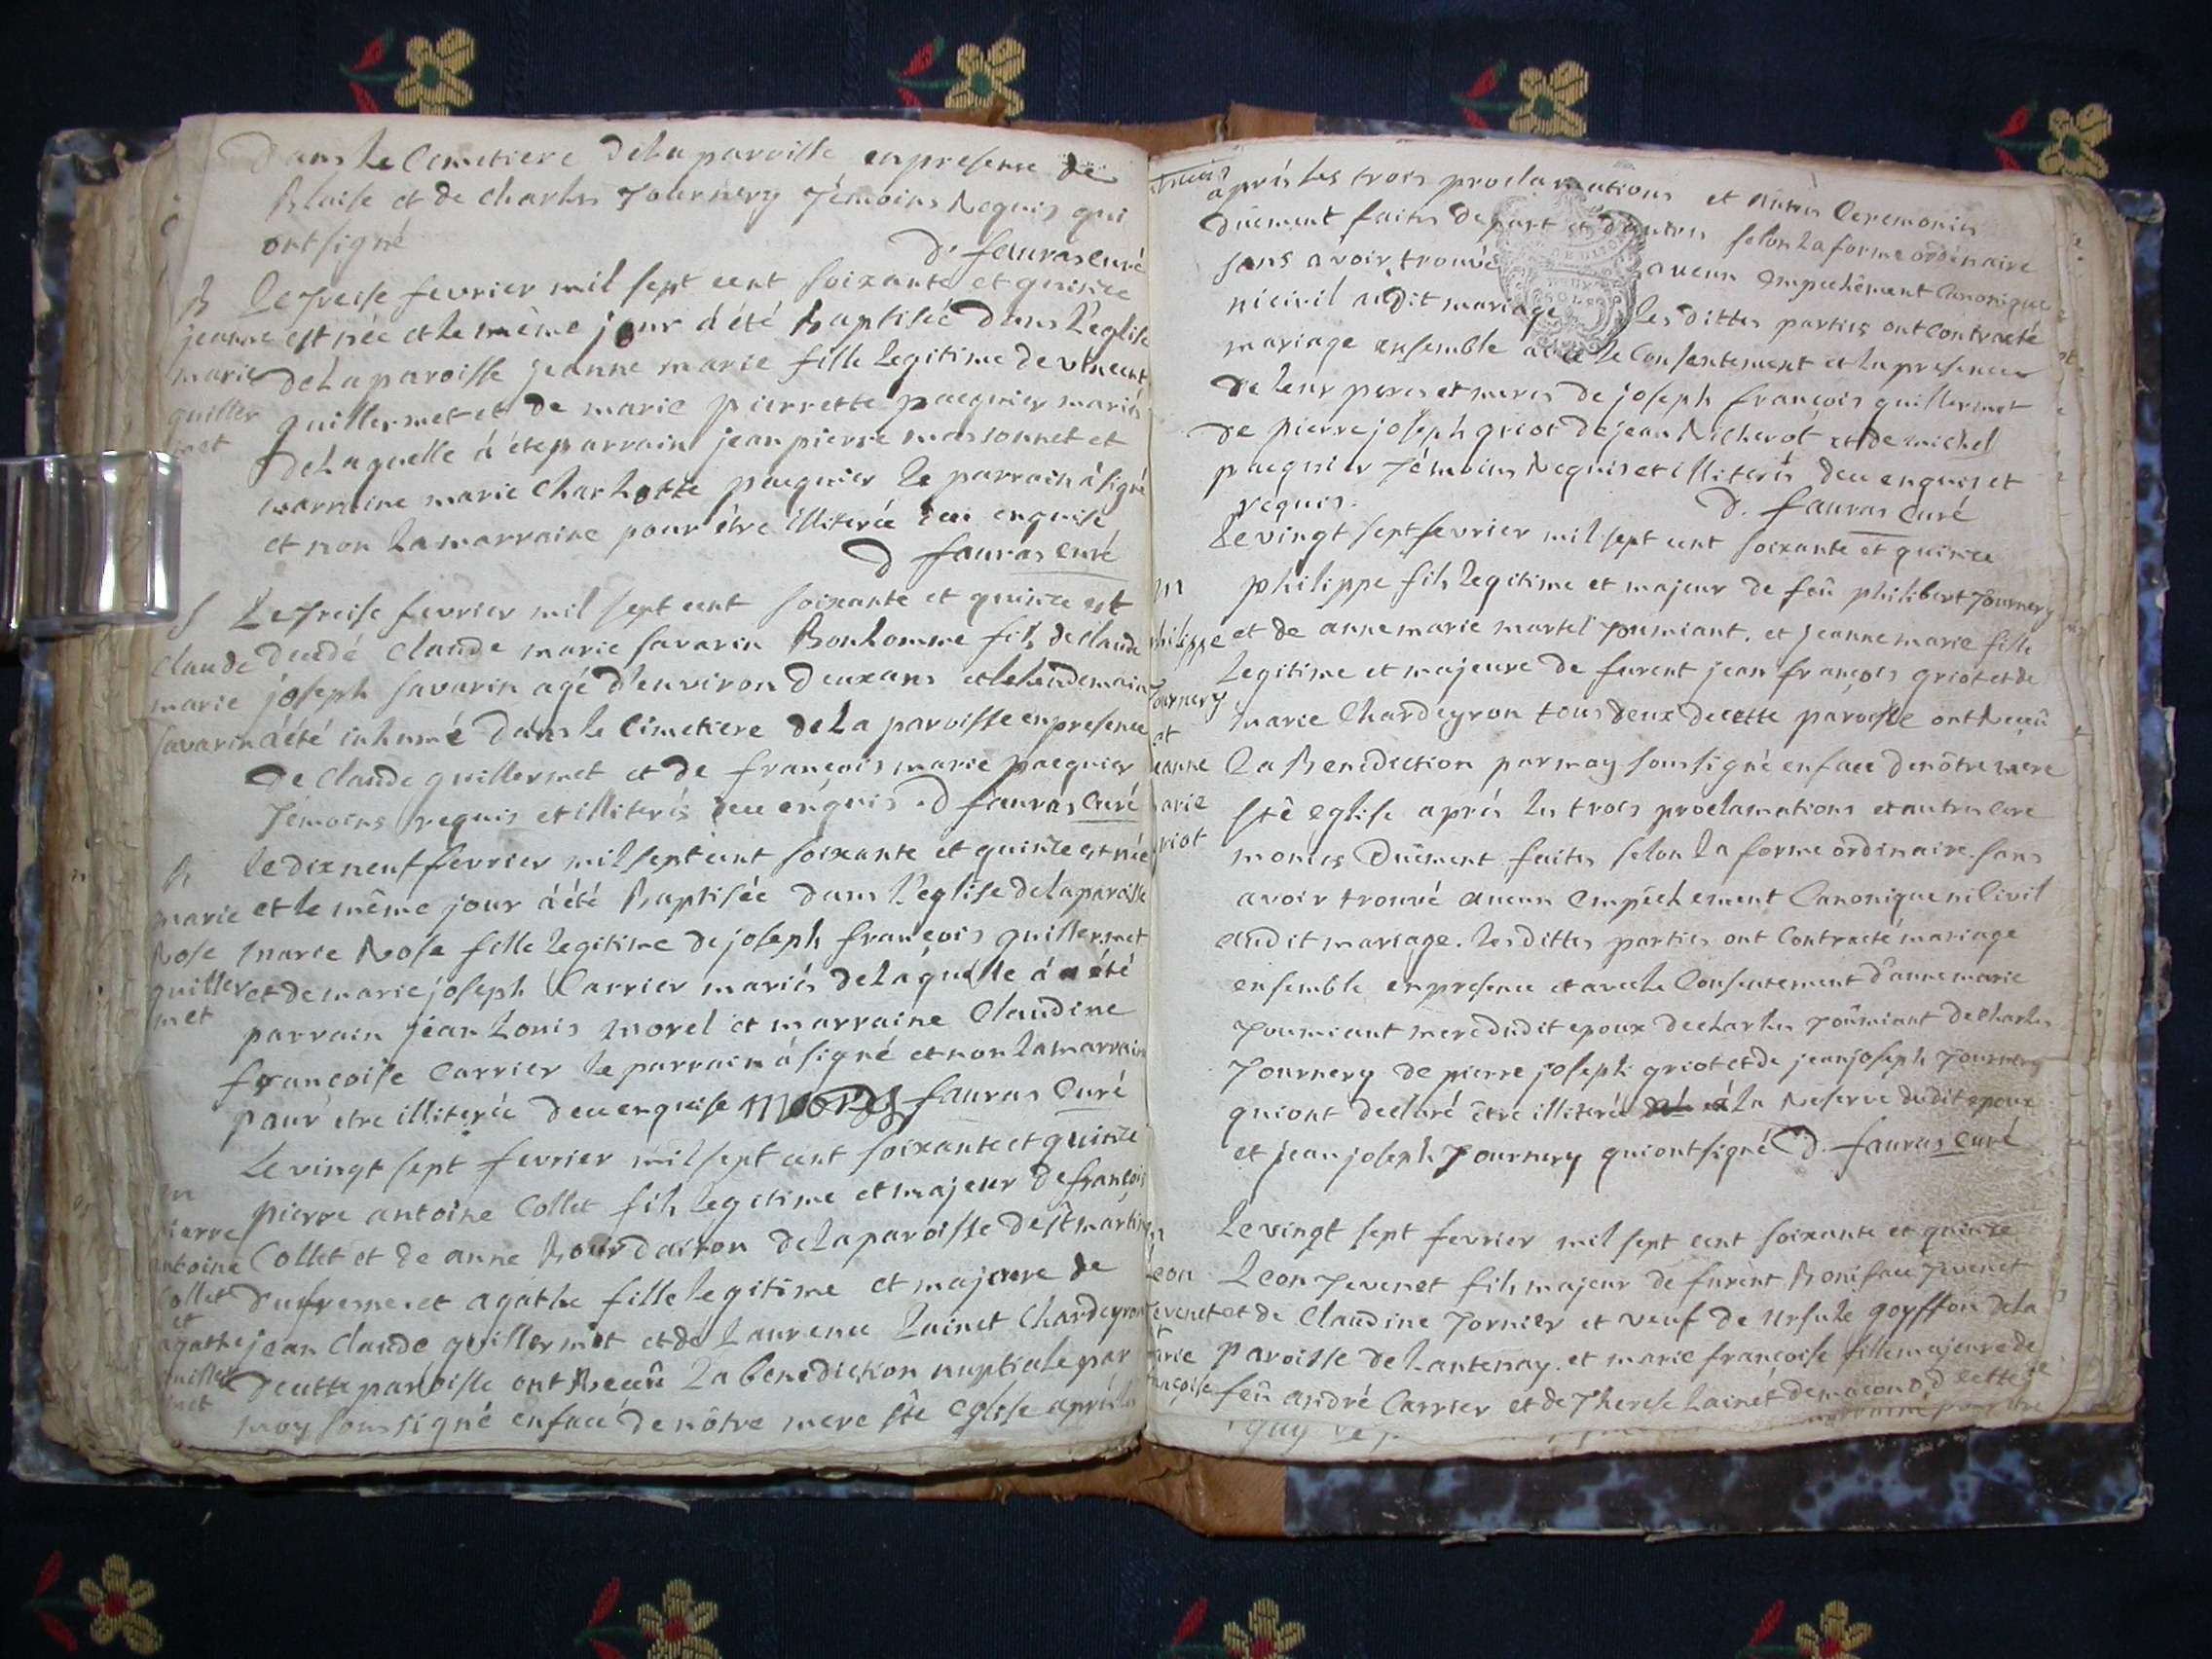 Dans le Cimetiere de la paroisse en presence de
Blaise et de charles Journery Témoins Requis qui
ont signé
D. fauras curé
B
Le Treise fevrier mil sept cent soixante et quinze
jeanne
est née et le même jour á été Baptisée Dans L'eglise
marie
de La paroisse jeanne marie fille Legitime de vincent
guiller
guillermet et de marie pierrette pacquier mariés
met
de Laquelle á été parrain jean pierre massonnet et
marraine marie Charlotte pacquier Le parrain á signé
et non La marraine pour être illiterée de ce enquise
D fauras curé
S
Le Treise fevrier mil sept cent soixante et quinze est
Claude
decedé Claude marie savarin Bonhomme fils de Claude
marie
joseph savarin agé d'environ deux ans et le Lendemain
savarin
á été inhumé dans le Cimetiere de La paroisse en presence
De Claude guillermet et de françois marie pacquier
Témoins requis et illiterés de ce enquis. D fauras Curé
B
le dix neuf fevrier mil sept cent soixante et quinze est née
marie
et le même jour á été Baptisée dans L'eglise de la paroisse
Rose
marie Rose fille legitime de joseph françois guillermet
guiller
et de marie joseph Carrier mariés de Laquelle á été
met
parrain jean Louis morel et marraine Claudine
françoise Carrier le parrain á signé et non la marraine
pour etre illiterée de ce enquise morel fauras Curé
Le vingt sept fevrier mil sept cent soixante et quinze
m
pierre antoine Collet fils legitime et majeur de françois
pierre
antoine
Collet et de anne Bourdairon de La paroisse de st martin
Collet
du fresne et agathe fille legitime et majeure de
et
agathe
jean Claude guillermet et de Laurence Lainet Chardeyron
guiller
de cette paroisse ont Receû La benediction nuptiale par
met
moy soussigné en face de nôtre mere ste Eglise aprés les
aprés les trois proclamations et autres Ceremonies
duëment faites de part et d'autres selon La forme ordinaire
sans avoir trouvé aucun empechément Canonique
ni civil audit mariage Les dittes parties ont Contracté
mariage ensemble avec le Consentement et la presence
de leur peres et meres de joseph françois guillermet
de pierre joseph griot de jean Richerot et de michel
pacquier Témoins Requis et illiterés de ce enquis et
requis.
D. fauras Curé
Le vingt sept fevrier mil sept cent soixante et quinze
m
philippe fils legitime et majeur de feû philibert Journery
philippe
et de anne marie martel pumiant. et jeanne marie fille
Legitime et majeure de furent jean françois griot et de
Journery
marie Chardeyron tous deux de cette paroisse ont Receû
et
jeanne
La Benediction par moy soussigné en face de nôtre mere
marie
ste Eglise aprés les trois proclamations et autres cere
griot
monies Duëment faites selon La forme ordinaire sans
avoir trouvé aucun Empéchement Canonique ni Civil
audit mariage. les dittes parties ont Contracté mariage
ensemble en presence et avec le Consentement d'anne marie
Toumiant mere dudit epoux de charles Toûmiant de Charles
Journery de pierre joseph griot et de jean joseph Journery
qui ont declaré être illiterés á La Reserve dudit epoux
et jean joseph Journery qui ont signé D. fauras Curé
Le vingt sept fevrier mil sept cent soixante et quinze
m
Leon
Leon Tevenet fils majeur de furent Boniface Tevenet
Tevenet
et de Claudine Tornier et veuf de ursule goyffon de La
et
marie
paroisse de Lantenay. et marie françoise fille majeure de
françoise
feû andré Carrier et de Therese Lainét